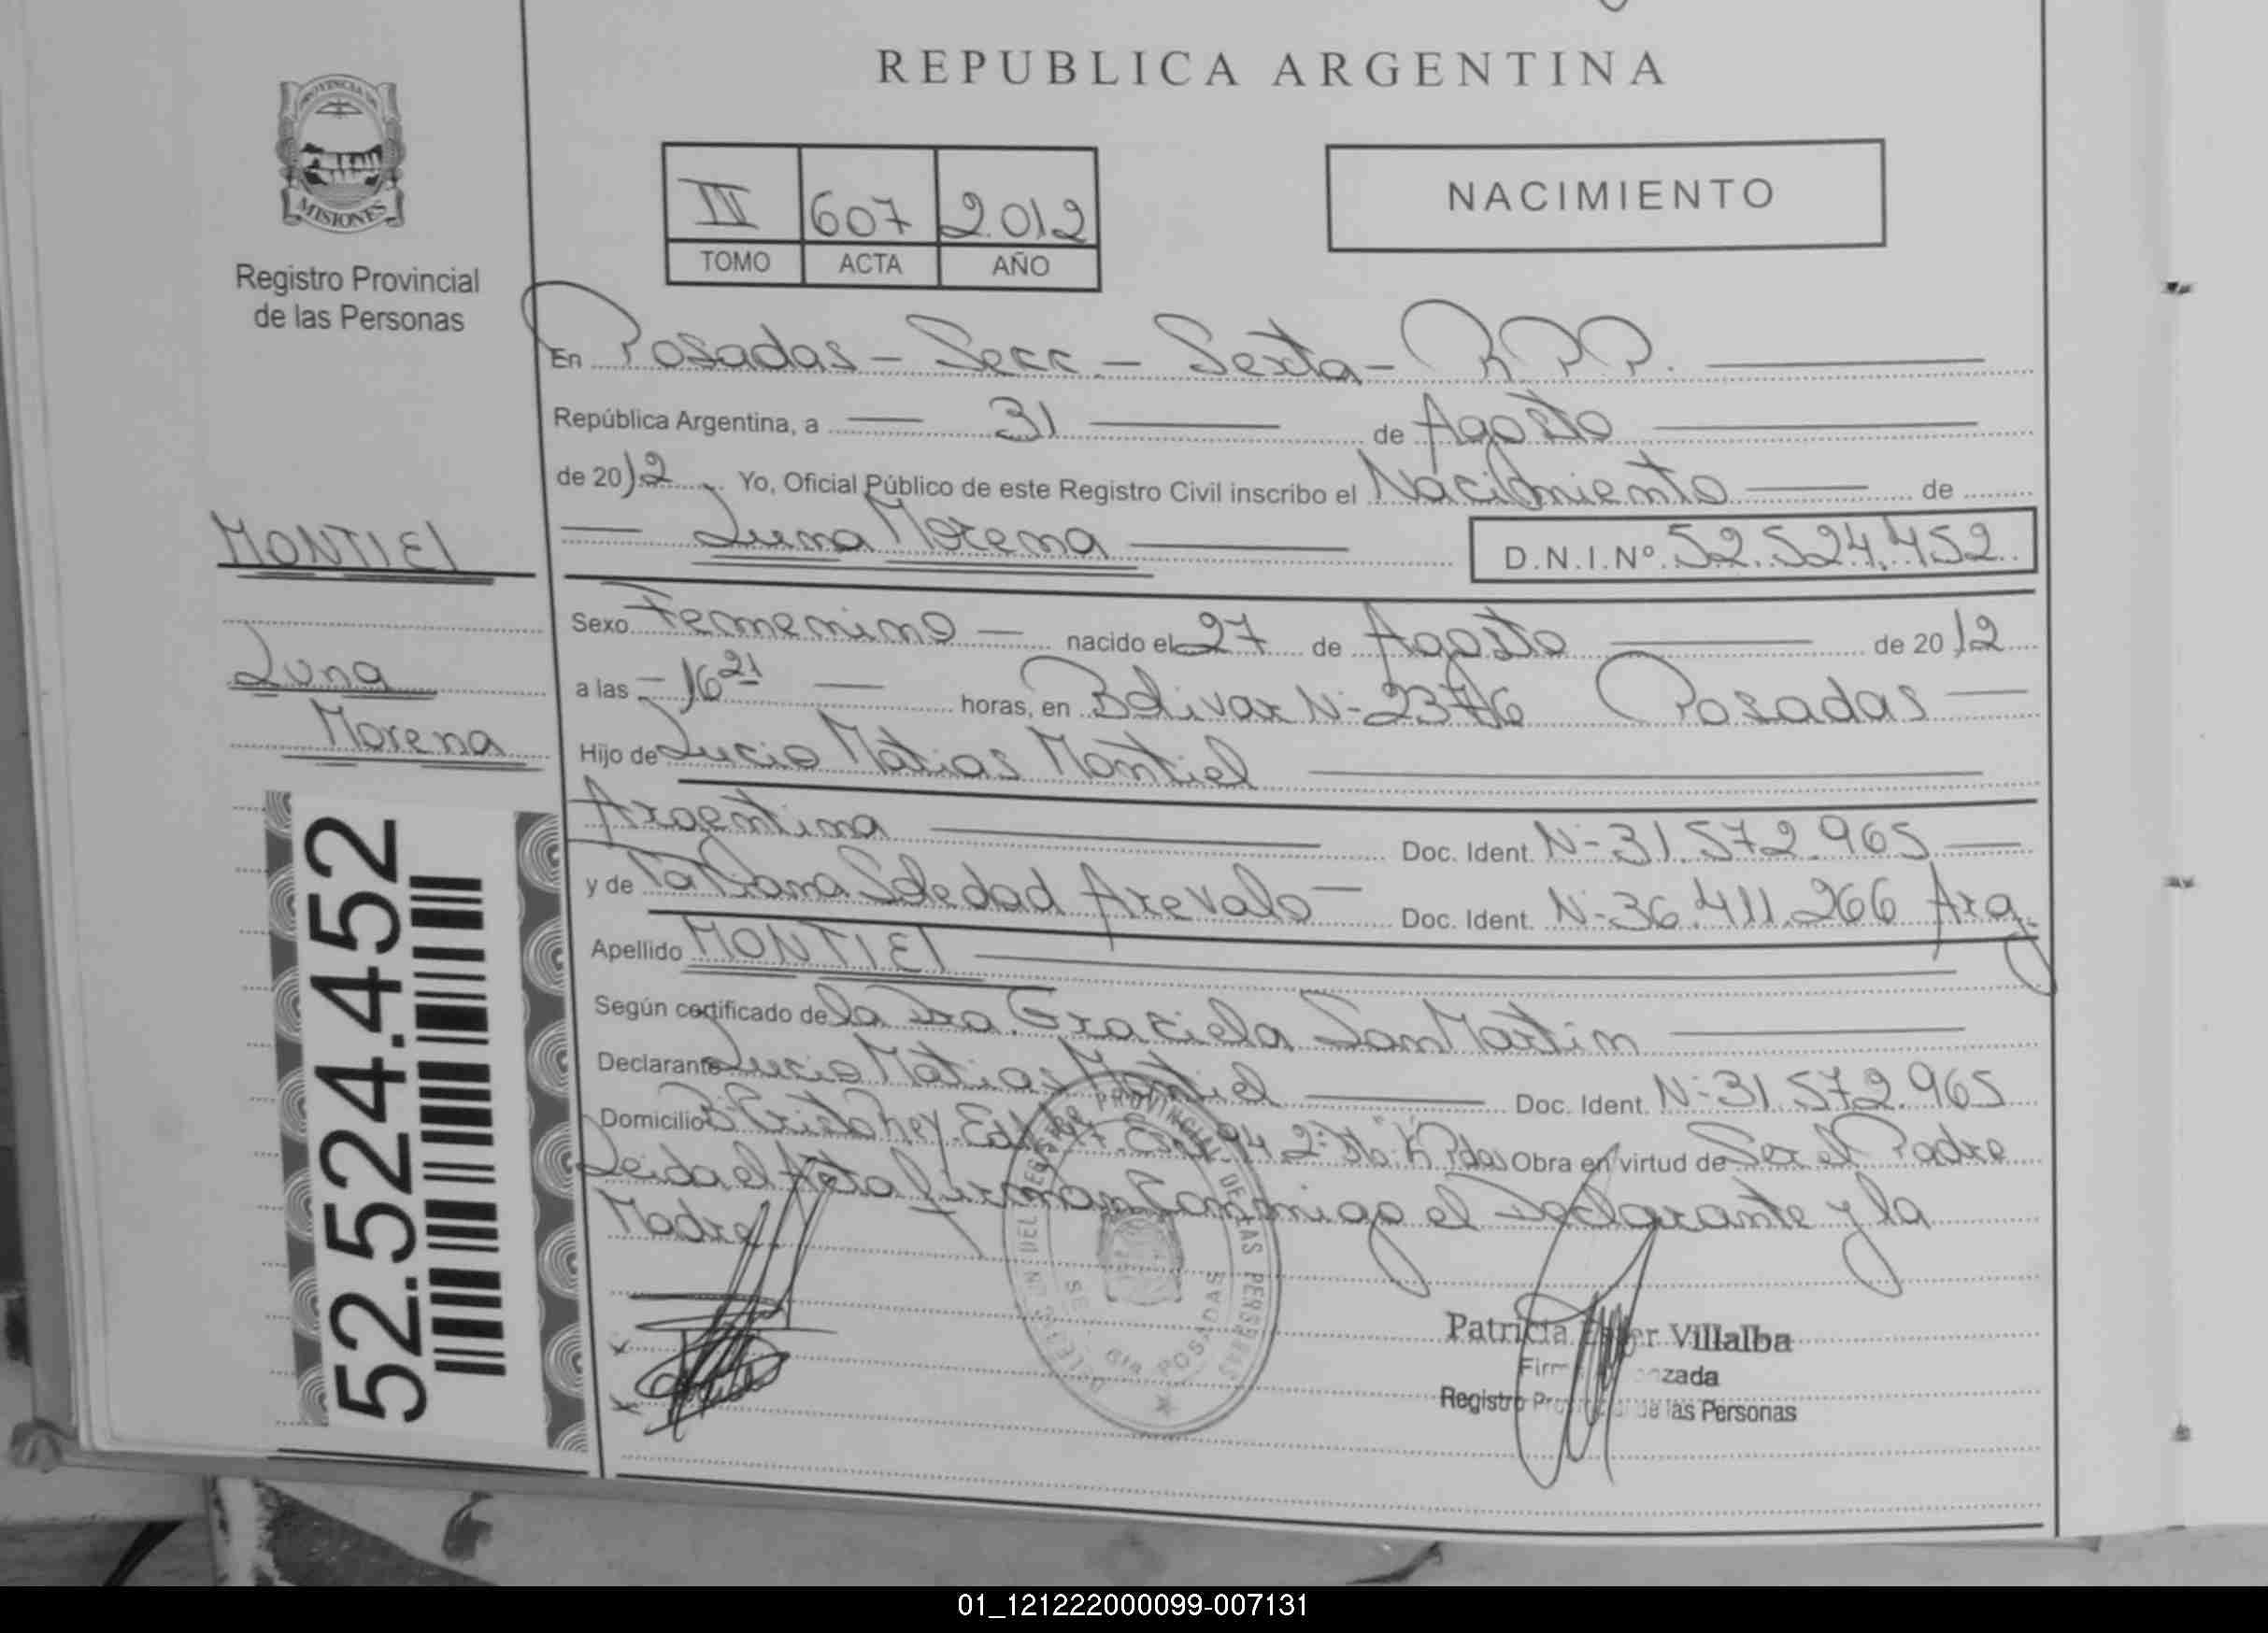 REPUBLICA ARGENTINA
PROVINCIA DE
MISIONES
Registro Provincial
de las Personas
IV 607 2.012
TOMO ACTA AÑO
NACIMIENTO
En Posadas - Secc. - Sexta - R.P.P.
República Argentina, a 31 de Agosto
de 2012 Yo, Oficial Público de este Registro Civil inscribo el Nacimiento de
Luna Morena D.N.I.Nº. 52.524.452.
MONTIEL
Luna
Morena
Sexo Femenino nacido el 27 de Agosto de 2012
a las - 16 21 horas, en Bolivar N- 2376 Posadas
Hijo de Lucio Matias Montiel
Argentina Doc. Ident. N- 31.572.965
y de Tatiana Soledad Arevalo Doc. Ident. N- 36.411.266 Arg.
Apellido MONTIEL
Según certificado de la Dra. Graciela San Martin
Declarante Lucio Matias Montiel Doc. Ident. N- 31.572.965
Domicilio Bº Cristo Rey. 94 2º "K" Pdas Obra en virtud de Ser el Padre
Leida el Acta firman Conmigo el Declarante y la
Madre.
52.524.452
DELEGACION DEL REGISTRO PROVINCIAL DE LAS PERSONAS
SEC. 6ta POSADAS
Patricia Ester Villalba
Registro Provincial de las Personas
01_121222000099-007131